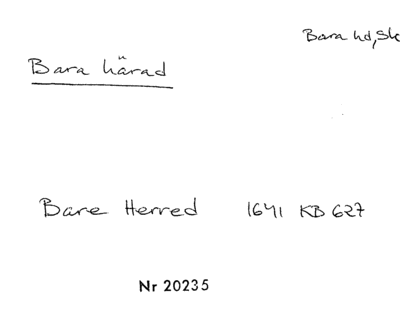 Bara hd, Sk
Bara härad
Bare Herred 1641 KB 627
Nr 20235